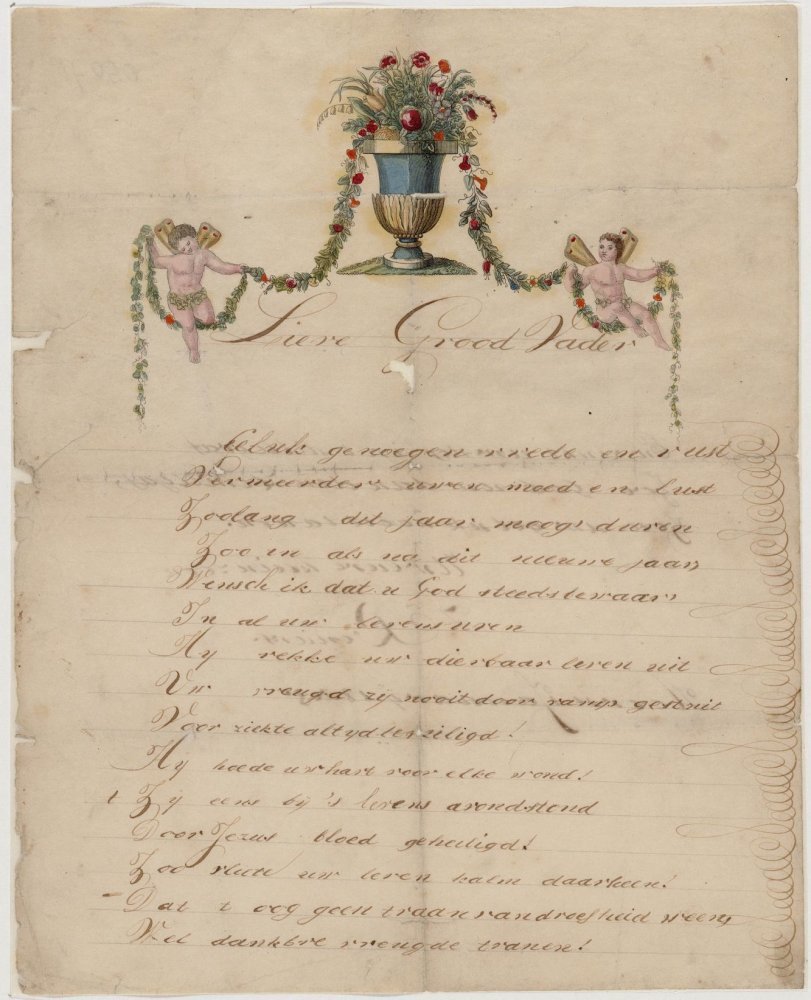 Lieve Grood Vader
Geluk genoegen vrede en rust
Vermeerder uwen moed en lust
Zoolang dit jaar moogt duren
Zoo in als na dit nieuwe jaar
Wensch ik dat u God steeds bewaar
In al uw levensuren
Hy rekke uw dierbaar leven uit
Uw vreugd zy nooit door ramp gestuit
Voor ziekte altyd beveiligd!
Hy hoede uw hart voor elke wond!
t Zij eens bij 's levens avondstond
Door Jezus bloed geheiligd!
Zoo vliete uw leven kalm daarheen!
Dat t oog geen traan van droefheid ween
Wel dankbre vreugde tranen!